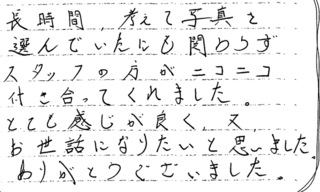 長時間、考えて写真を
選んでいたにも関わらず
スタッフの方がニコニコ
付き合ってくれました。
とても感じが良く、又、
お世話になりたいと思いました。
ありがとうございました。